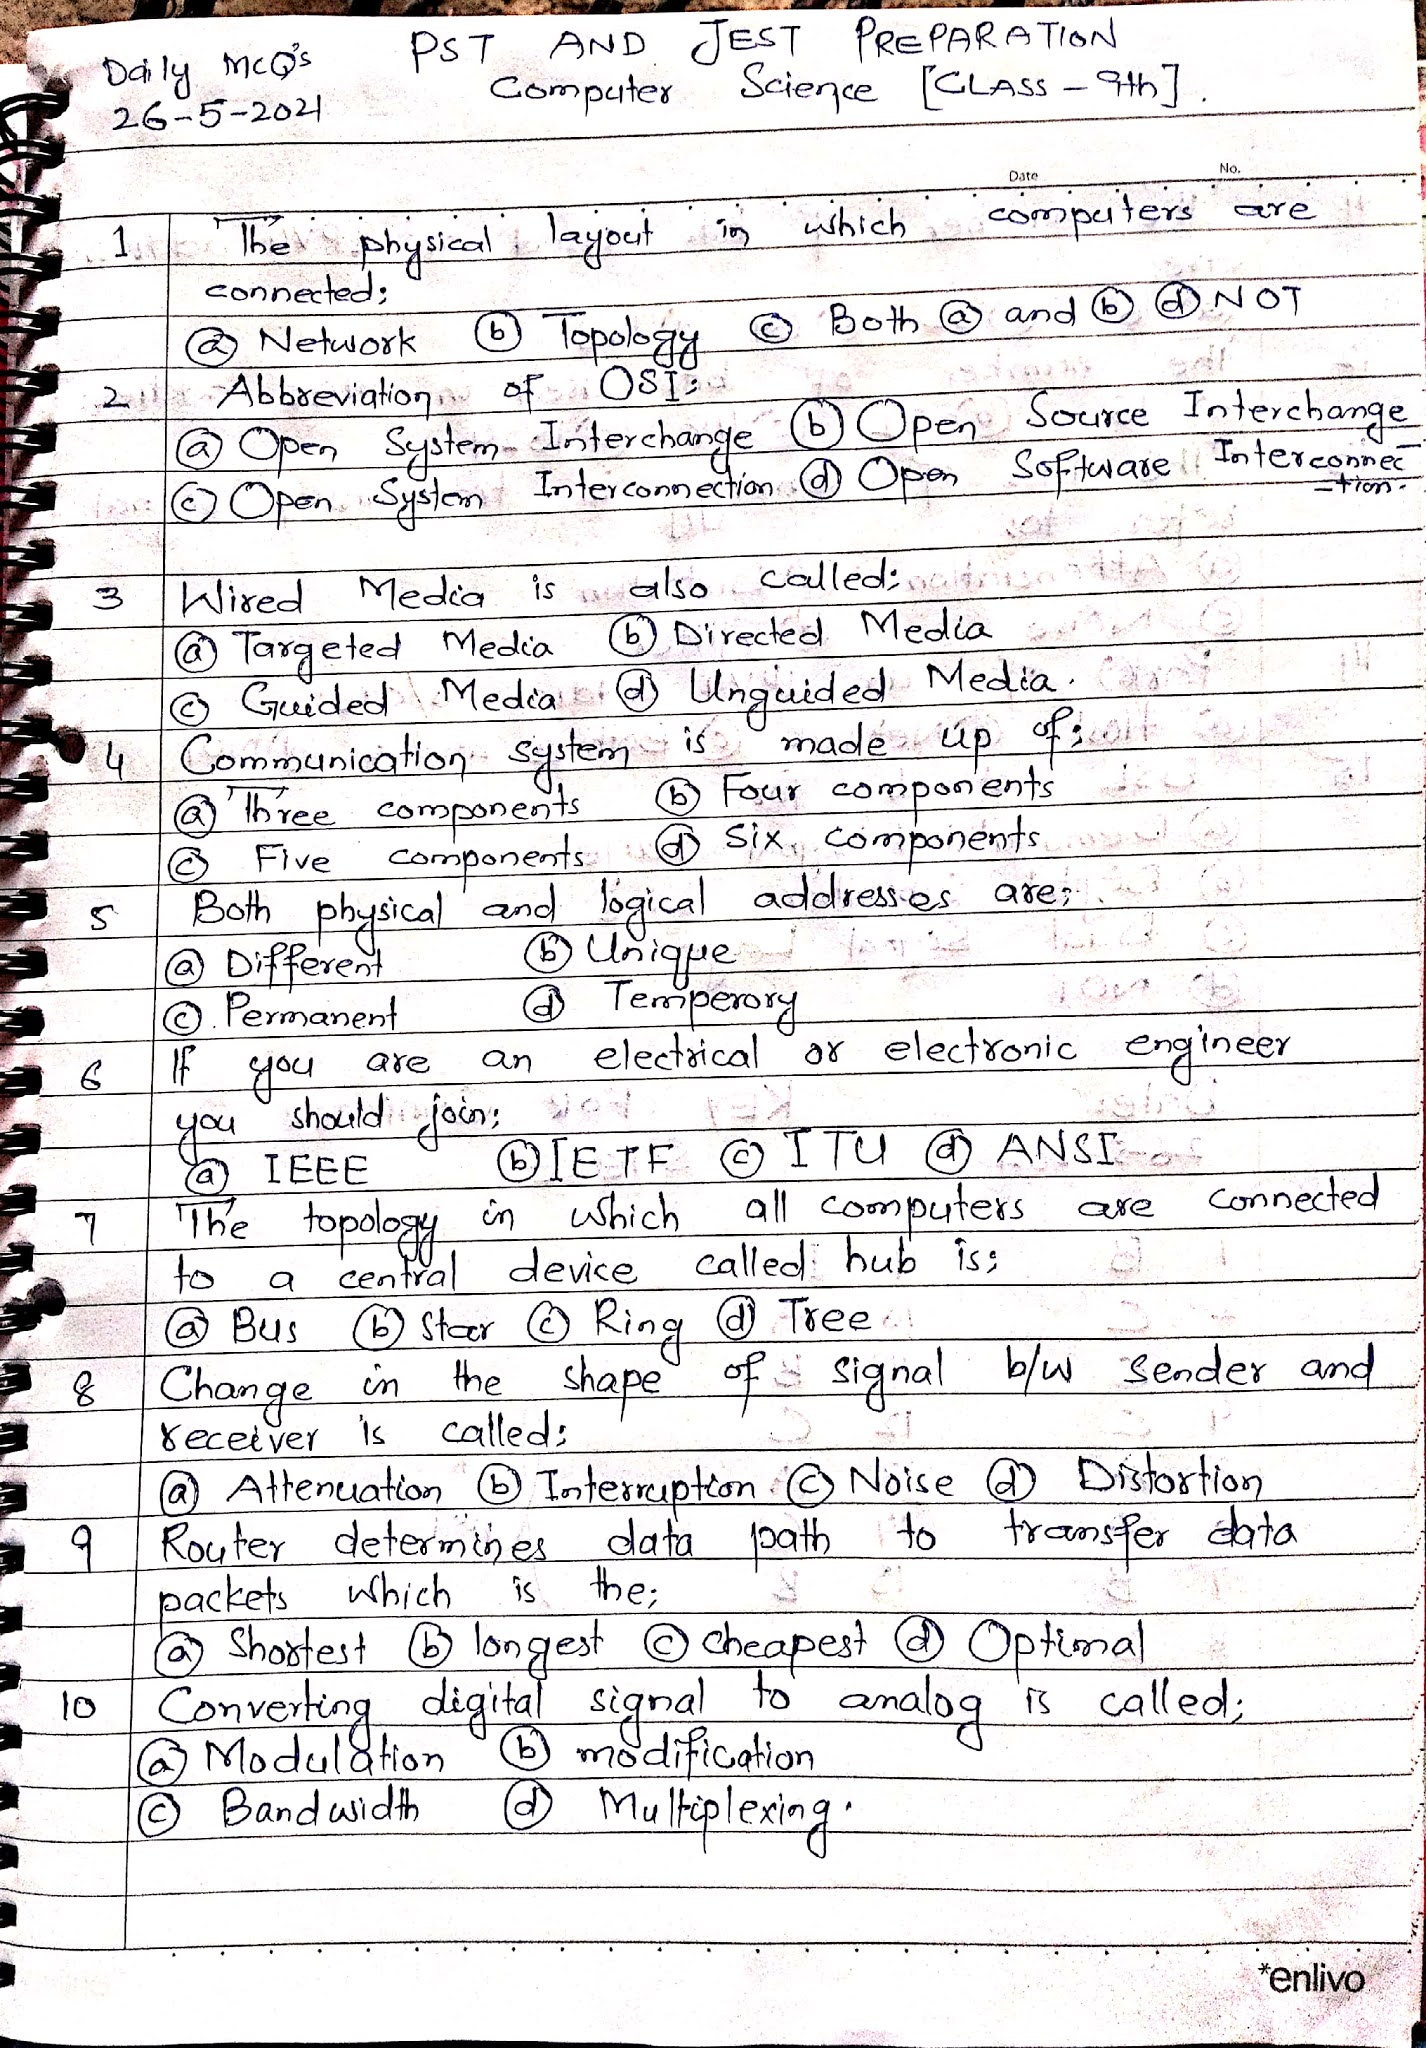 Daily MCQ's
26-5-2021
PST AND JEST PREPARATION
Computer Science [CLASS - 9th].
Date No.
1 The physical layout in which computers are
connected;
(a) Network (b) Topology (c) Both (a) and (b) (d) NOT
2 Abbreviation of OSI;
(a) Open System Interchange (b) Open Source Interchange
(c) Open System Interconnection (d) Open Software Interconnec
-tion.
3 Wired Media is also called;
(a) Targeted Media (b) Directed Media
(c) Guided Media (d) Unguided Media.
4 Communication system is made up of;
(a) Three components (b) Four components
(c) Five components (d) Six components
5 Both physical and logical addresses are;
(a) Different (b) Unique
(c) Permanent (d) Temperory
6 If you are an electrical or electronic engineer
you should join;
(a) IEEE (b) IETF (c) ITU (d) ANSI
7 The topology in which all computers are connected
to a central device called hub is;
(a) Bus (b) Star (c) Ring (d) Tree
8 Change in the shape of signal b/w sender and
receiver is called;
(a) Attenuation (b) Interruption (c) Noise (d) Distortion
9 Router determines data path to transfer data
packets which is the;
(a) Shortest (b) longest (c) cheapest (d) Optimal
10 Converting digital signal to analog is called;
(a) Modulation (b) modification
(c) Bandwidth (d) Multiplexing.
*enlivo